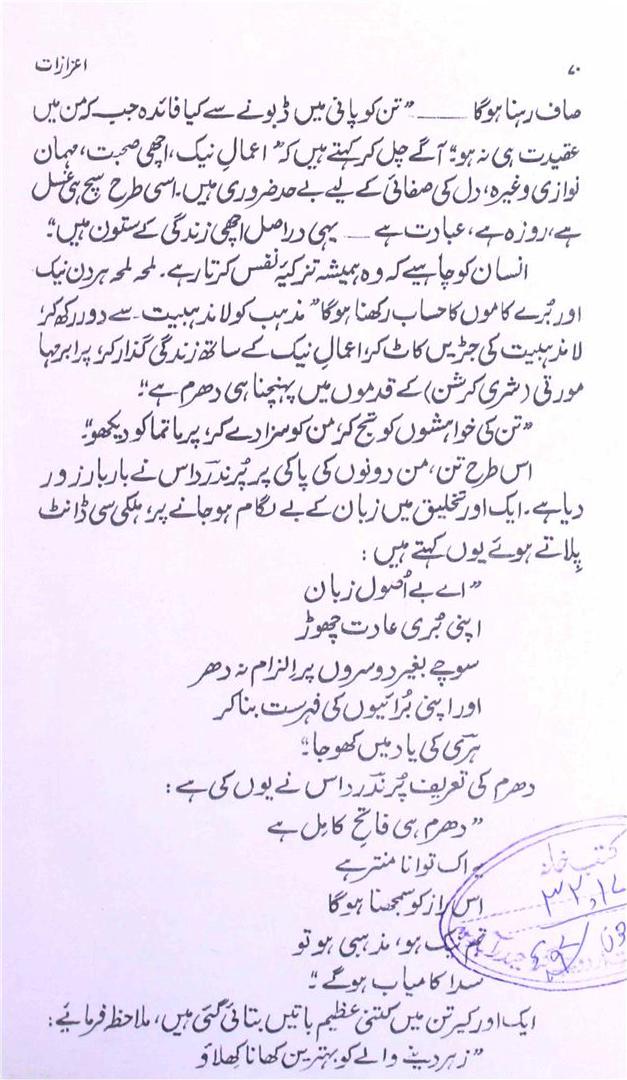 ۷۰ اعزازات
صاف رہنا ہوگا ــــــ "تن کو پانی میں ڈبونے سے کیا فائدہ جب کہ من میں
عقیدت ہی نہ ہو" آگے چل کر کہتے ہیں کہ "اعمالِ نیک، اچھی صحبت، مہمان
نوازی وغیرہ، دل کی صفائی کے لیے بے حد ضروری ہیں۔ اسی طرح سچ ہی غسل
ہے، روزہ ہے، عبادت ہے ــــ یہی دراصل اچھی زندگی کے ستون ہیں"۔
انسان کو چاہیے کہ وہ ہمیشہ تزکیۂ نفس کرتا رہے۔ لمحہ لمحہ ہر دن نیک
اور بُرے کاموں کا حساب رکھنا ہوگا "مذہب کو لامذہبیت سے دور رکھ کر،
لامذہبیت کی جڑیں کاٹ کر، اعمالِ نیک کے ساتھ زندگی گذار کر، پرابرہما
مورتی (شری کرشن) کے قدموں میں پہنچنا ہی دھرم ہے"۔
"تن کی خواہشوں کو تج کر، من کو سزا دے کر، پرماتما کو دیکھو"۔
اس طرح تن، من دونوں کی پاکی پر پُرندرداس نے بار بار زور
دیا ہے۔ ایک اور تخلیق میں زبان کے بے لگام ہو جانے پر، ہلکی سی ڈانٹ
پلاتے ہوئے یوں کہتے ہیں:
"اے بے اُصول زبان
اپنی بُری عادت چھوڑ
سوچے بغیر دوسروں پر الزام نہ دھر
اور اپنی بُرائیوں کی فہرست بنا کر
ہری کی یاد میں کھو جا"۔
دھرم کی تعریف پُرندرداس نے یوں کی ہے:
"دھرم ہی فاتح کامِل ہے
یہ اک توانا منتر ہے
اس راز کو سمجھنا ہوگا
تم نیک ہو، مذہبی ہو تو
سدا کامیاب ہوگے"۔
ایک اور کیرتن میں کتنی عظیم باتیں بتائی گئی ہیں، ملاحظہ فرمائیے:
"زہر دینے والے کو بہترین کھانا کھلاؤ
کتب خانہ